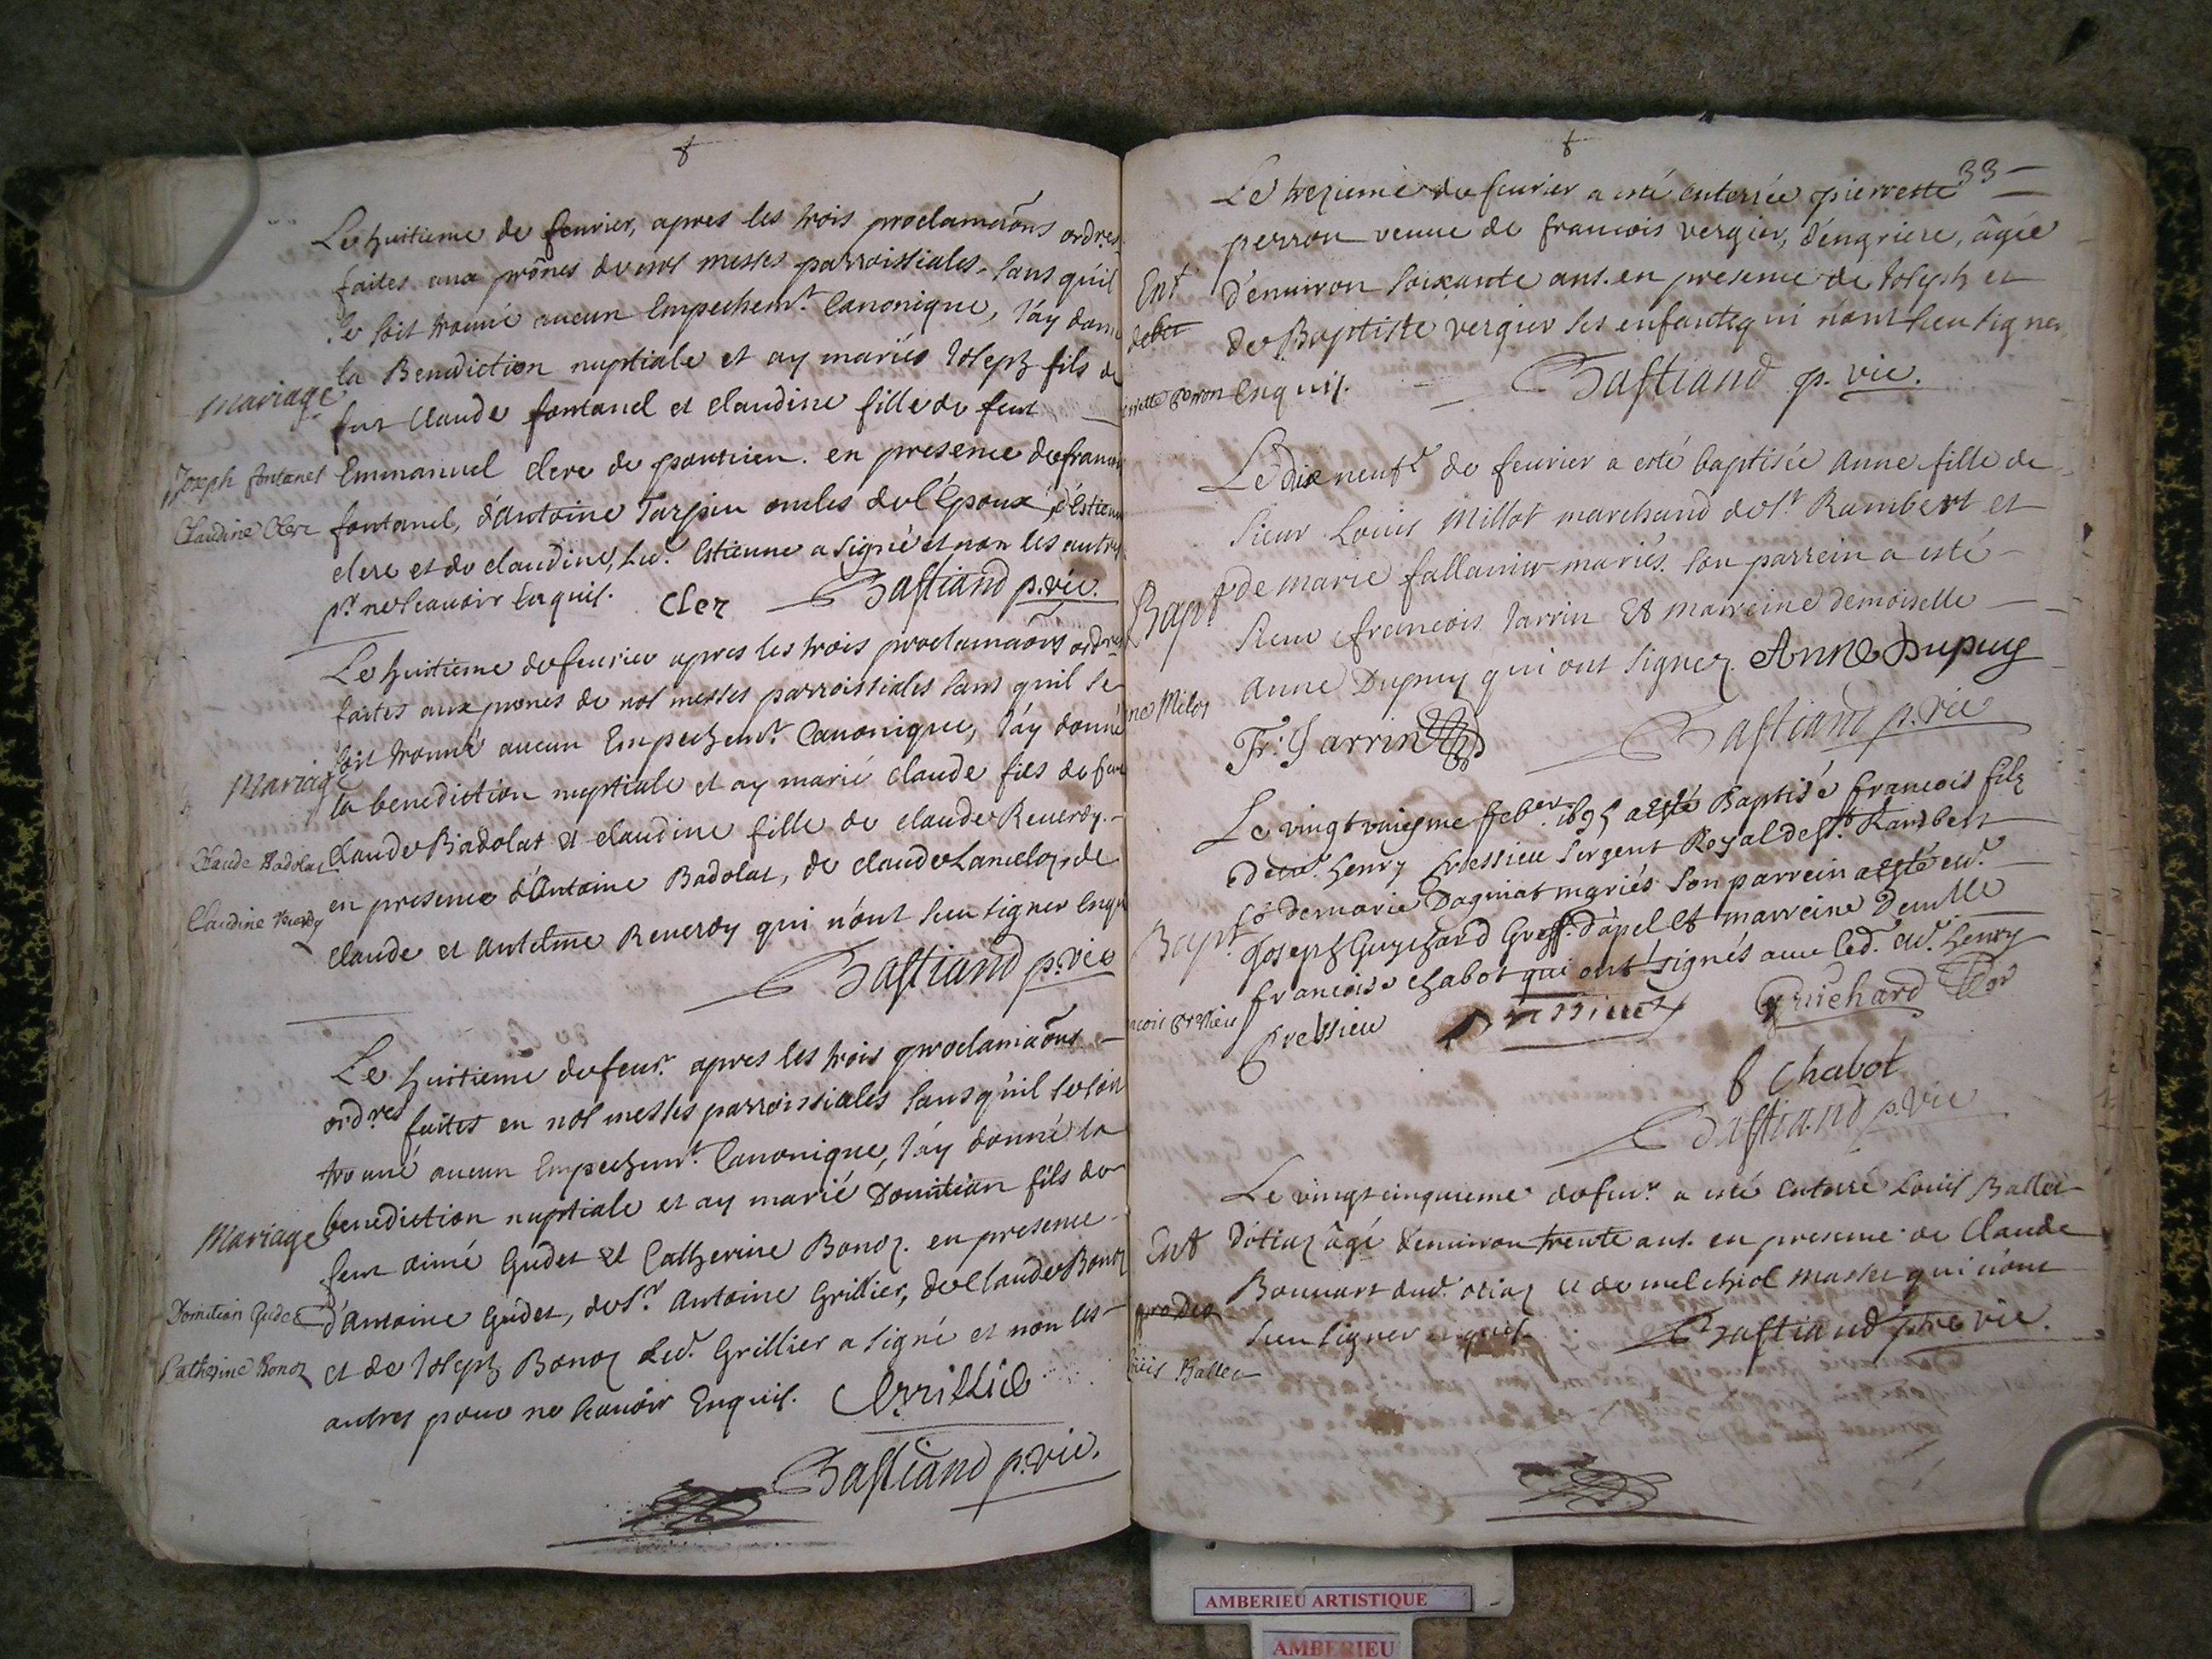 Le huitieme de feurier, apres les trois proclamaõns ordres
faites aux prônes de nos messes parroissiales sans qu'il
se soit trouué aucun Empechemt. Canonique, J'ay donné
la Benediction nuptiale et ay mariés Joseph fils de
Mariage
feu Claude fontanel et claudine fille de feu
Joseph fontanel
Claudine Clerc
Emmanuel clerc de ponthieu. en presence de francois
fontanel, d'Antoine Tarpin oncles de l'Epoux, d'Estienne
clerc et de claudine, led. Estienne a signé et non les autres
pr. ne scauoir Enquis. Cler Bastiand p. vic.
Le huitieme de feurier apres les trois proclamaõns ordres
faites aux prones de nos messes parroissiales sans quil se
soit trouué aucun Empechemt. Canonique, J'ay donné
Mariage
la benediction nuptiale et ay marié claude fils de feu
Claude Badolat
claude Badolat et claudine fille de claude Reuerdy.
Claudine Reuerdy
en presence d'Antoine Badolat, de claude Lancelot, de
claude et Antelme Reuerdy qui n'ont sceu signer Enquis
Bastiand p. vic
Le huitieme de feur. apres les trois proclamaõns
ordres faites en nos messes parroissiales sans qu'il se soit
trouué aucun Empechemt. Canonique, J'ay donné la
benediction nuptiale et ay marié Domitian fils de
Mariage
feu aimé Gudet et Catherine Bonoz. en presence
Domitian Gudet
d'Antoine Gudet, de sr. Antoine Grillier, de Claude Bonoz
Catherine Bonoz
et de Joseph Bonoz led. Grillier a signé et non les
autres pour ne scauoir Enquis. Grillie
Bastiand p. vic.
33
Le trezieme de feurier a esté enterrée pierrette
perron veuue de francois vergier, d'engriere, âgée
Ent
d'enuiron soixante ans. en presence de Joseph et
de Baptiste vergier ses enfants qui n'ont sceu signer
Enquis. Bastiand p. vic.
perron
Le dix neuf de feurier a esté baptisée Anne fille de
sieur Louis Millot marchand de St. Rambert et
de marie fallauier mariés. son parrein a esté
Bapt
sieur francois Jarrin Et marreine demoiselle
Anne Dupuy qui ont signez. Anne Dupuy
Fr. Jarrin Bastiand p. vic
Le vingt vniesme feber. 1695 a esté Baptisé francois filz
de me. henry Cressieu sergent Royal de St. Rambert
et de marie Dagniat mariés son parrein a esté me.
Bapt.
Joseph Guychard Greff. d'apel Et marreine Demlle
francoise chabot qui ont signés auec led. me. henry
Cressieu Cressieu Guichard
f Chabot
Bastiand p. vic
Le vingtcinquieme de feur. a esté Enterré Louis Ballet
Ent
d'otiaz âgé d'enuiron trente ans. en presence de Claude
Bonnart dud. otiaz et de melchiol masset qui n'ont
sceu signer enquis. Bastiand ptre vic.
Louis Ballet
AMBERIEU ARTISTIQUE
AMBERIEU